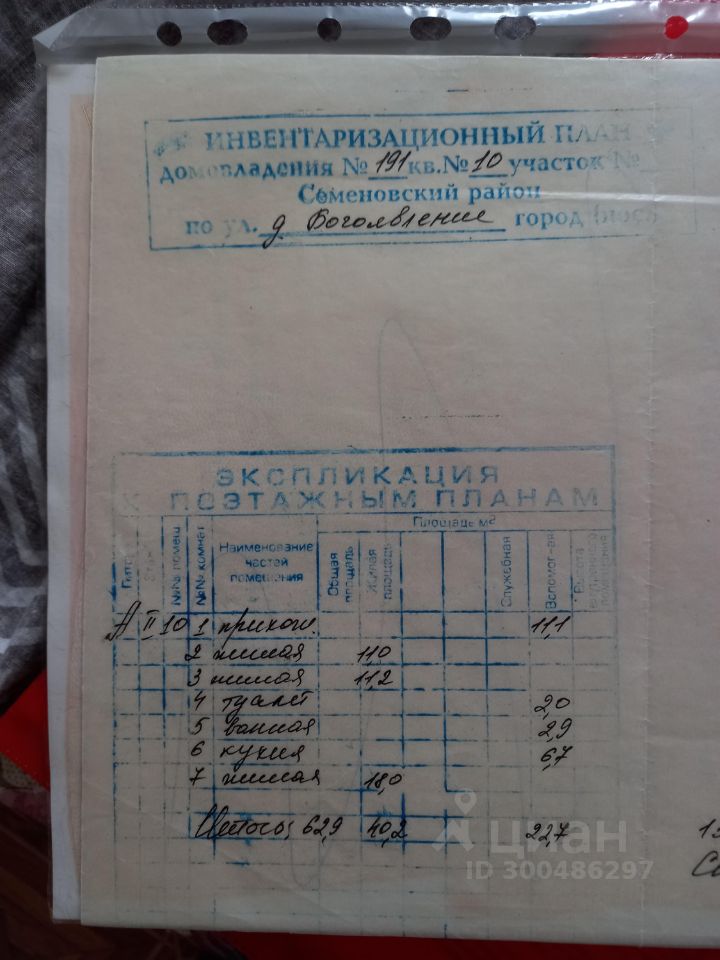 ИНВЕНТАРИЗАЦИОННЫЙ ПЛАН
домовладения № 191 кв. № 10 участок №
Семеновский район
по ул. д Богоявление город
ЭКСПЛИКАЦИЯ
К ПОЭТАЖНЫМ ПЛАНАМ
Площадь м2
Литер Этаж №№ помещ №№ комнат Наименование частей помещения Общая площадь Жилая площадь Служебная Вспомог-ая Высота внутреннего помещения
А II 10 1 прихож. 11,1
2 жилая 11,0
3 жилая 11,2
4 туалет 2,0
5 ванная 2,9
6 кухня 6,7
7 жилая 18,0
Итого: 62,9 40,2 22,7
циан
ID 300486297